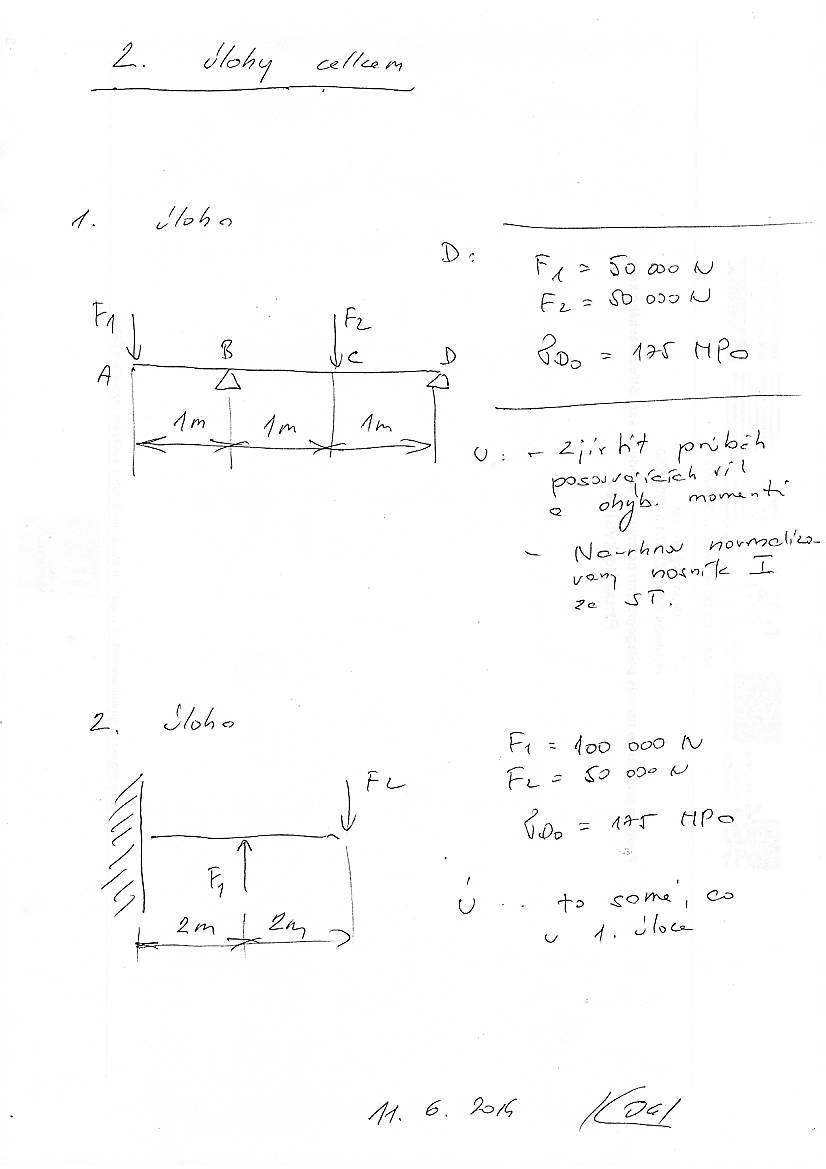 2. Úlohy celkem
1. Úloha
D:
F1 = 50 000 N
F2 = 50 000 N
σDo = 175 MPa
F1
F2
A
B
C
D
1m
1m
1m
Ú: - Zjistit průběh
posouvajících sil
a ohyb. momentů
- Navrhnout normalizo-
vaný nosník I
ze ST.
2. Úloha
F1 = 100 000 N
F2 = 50 000 N
σDo = 175 MPa
F2
F1
2m
2m
Ú .. to samé, co
u 1. úloze
11. 6.